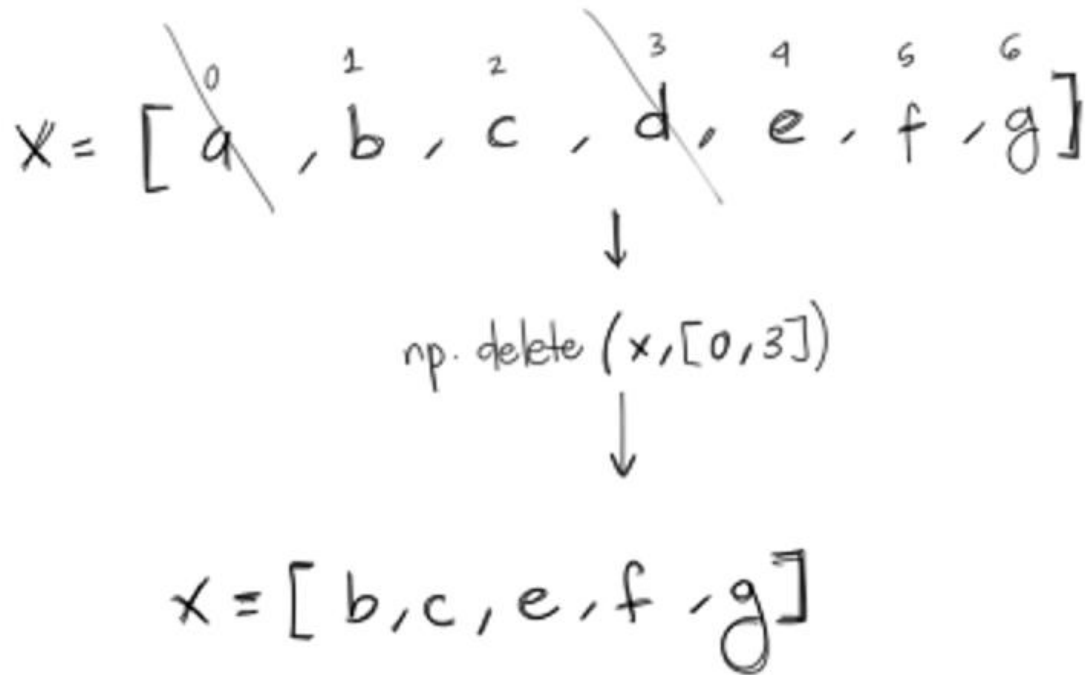 0 1 2 3 4 5 6
x = [ a , b , c , d , e , f , g ]
np.delete (x,[0,3])
x = [ b, c, e, f, g ]